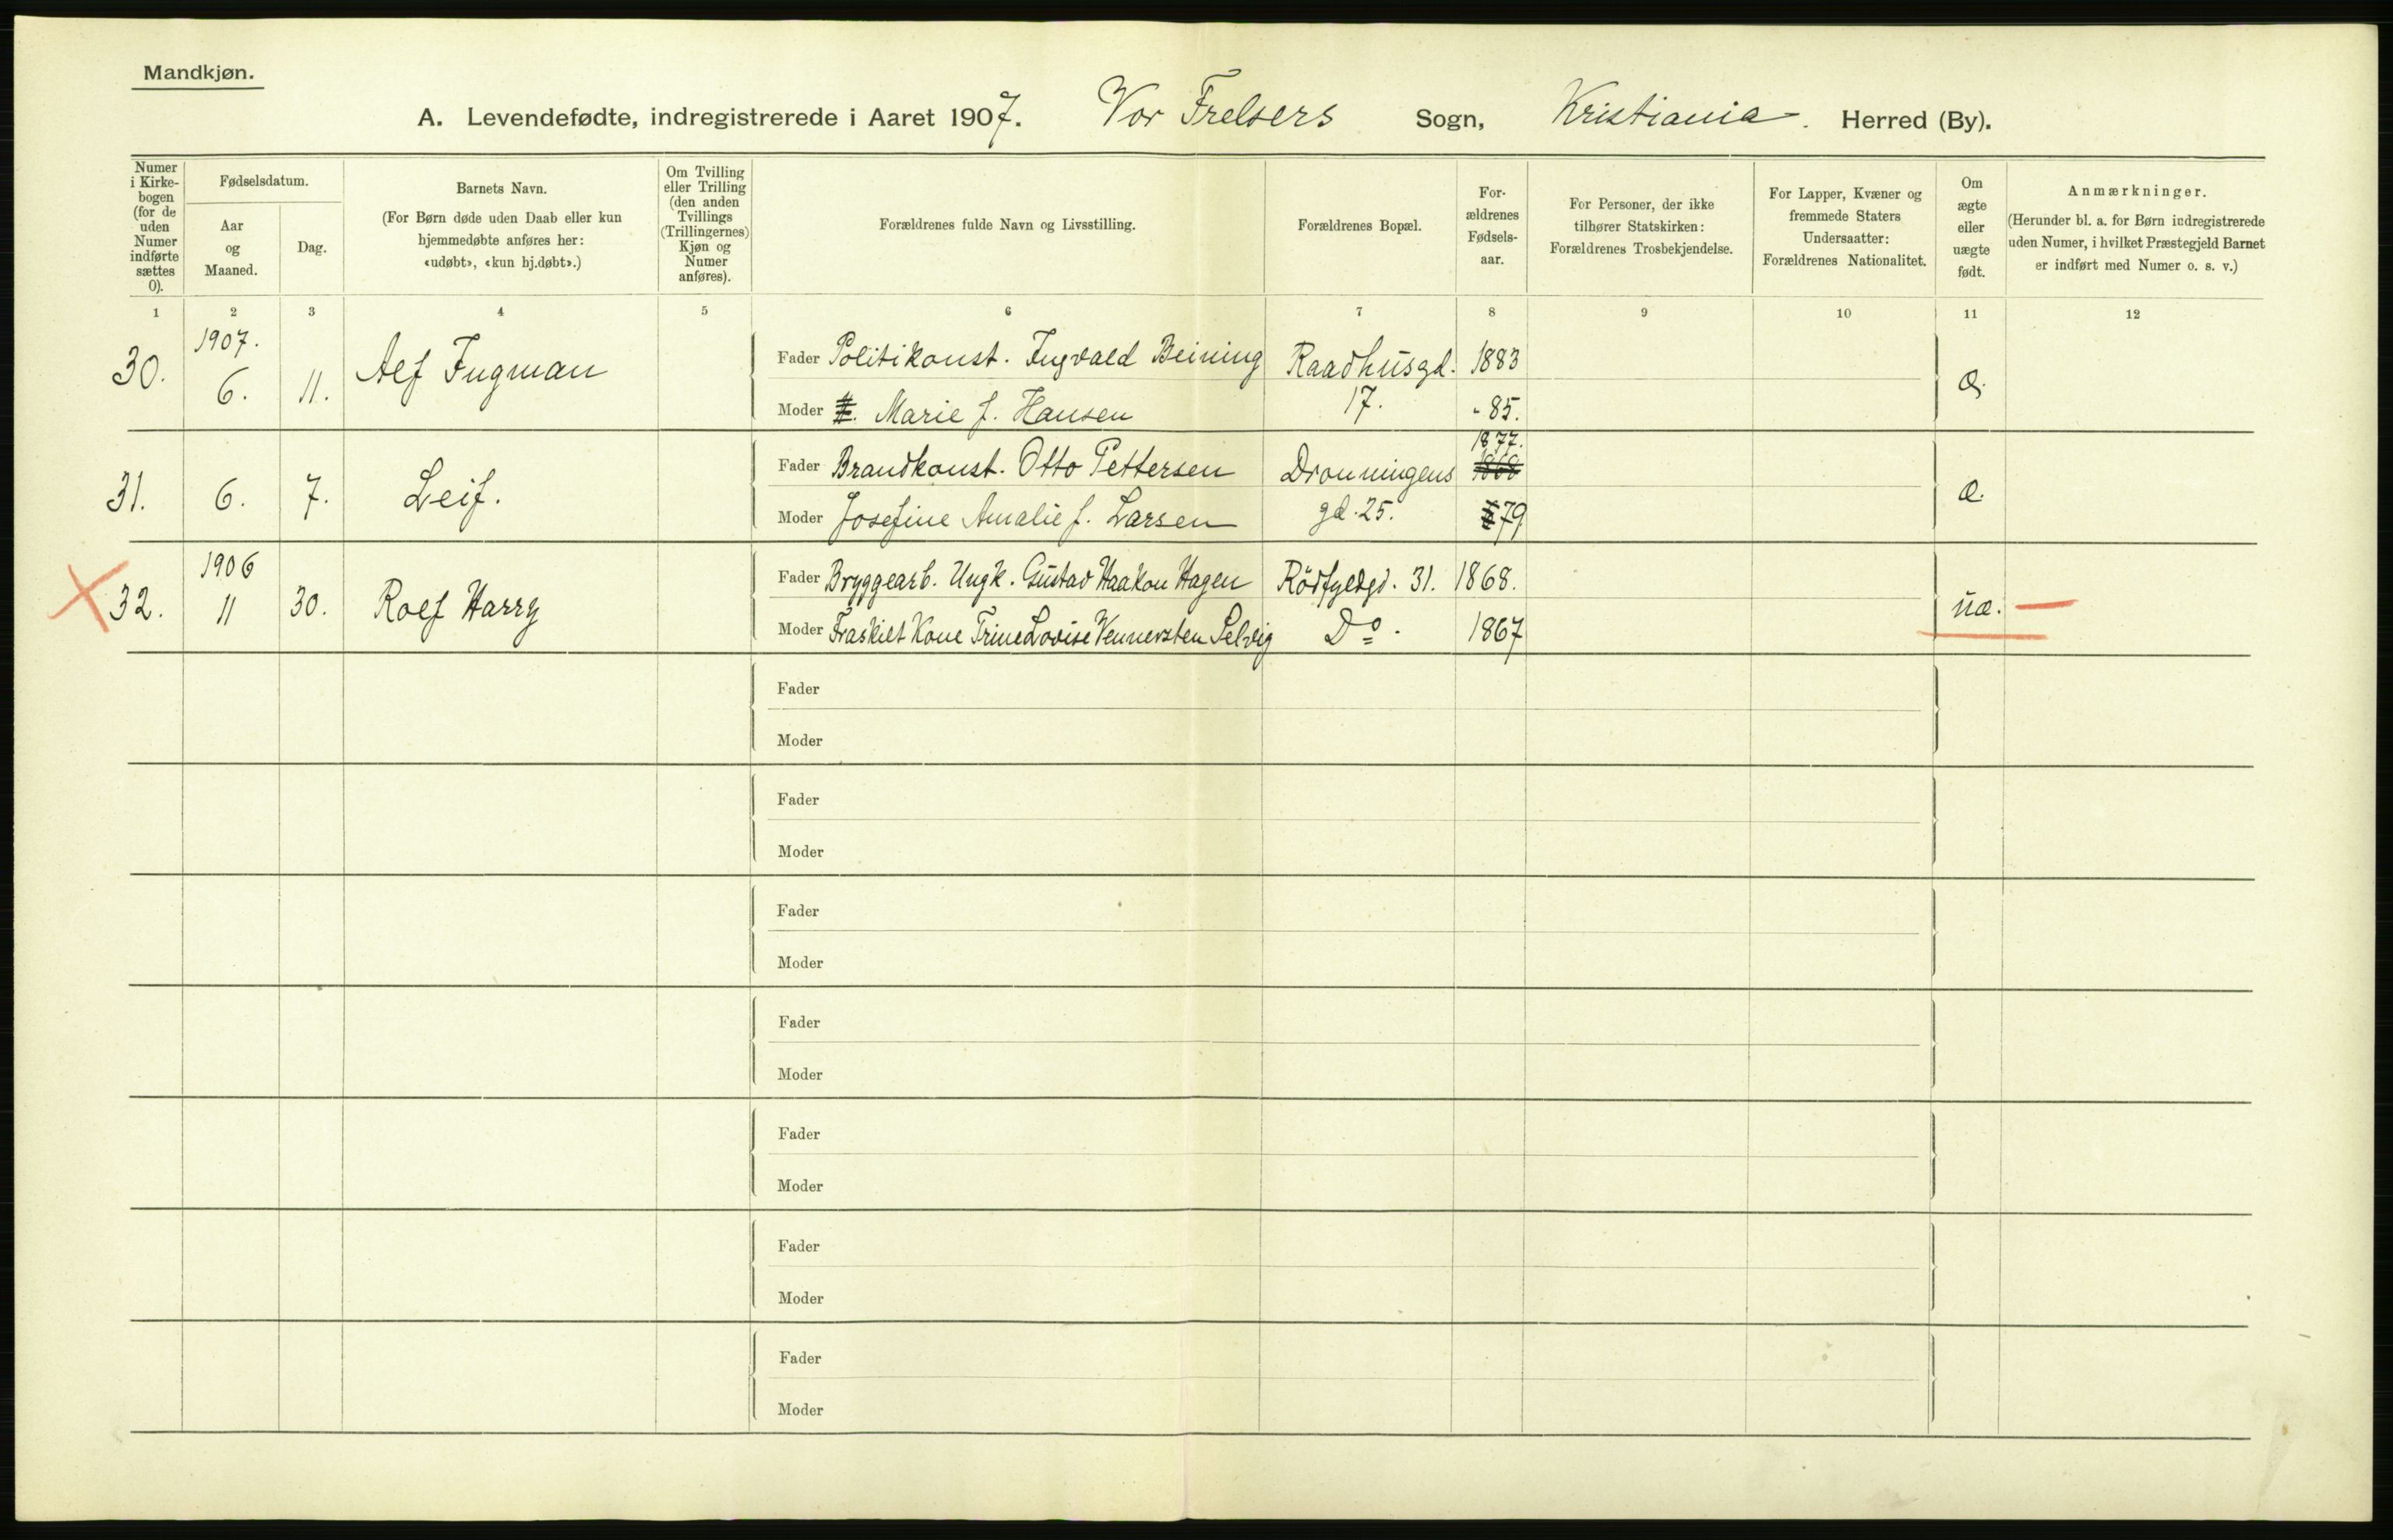 Mandkjøn.
A. Levendefødte, indregistrerede i Aaret 1907. Vor Frelsers Sogn, Kristiania. Herred (By).
Numer i Kirke-bogen (for de uden Numer indførte sættes 0).
Fødselsdatum.
Aar og Maaned.
Dag.
Barnets Navn.
(For Børn døde uden Daab eller kun hjemmedøbte anføres her: «udøbt», «kun hj.døbt».)
Om Tvilling eller Trilling (den anden Tvillings (Trillingernes) Kjøn og Numer anføres).
Forældrenes fulde Navn og Livsstilling.
Forældrenes Bopæl.
For-ældrenes Fødsels-aar.
For Personer, der ikke tilhører Statskirken: Forældrenes Trosbekjendelse.
For Lapper, Kvæner og fremmede Staters Undersaatter: Forældrenes Nationalitet.
Om ægte eller uægte født.
Anmærkninger.
(Herunder bl. a. for Børn indregistrerede uden Numer, i hvilket Præstegjeld Barnet er indført med Numer o. s. v.)
1 2 3 4 5 6 7 8 9 10 11 12
30. 1907. 6. 11. Alf Ingman
Fader Politikonst. Ingvald Beining Raadhusgd. 1883
Moder Marie f. Hansen 17. - 85. æ.
31. 6. 7. Leif.
Fader Brandkonst. Otto Pettersen Dronningens 1877. 1868
Moder Josefine Amalie f. Larsen gd. 25. 79 æ.
32. 1906 11 30. Rolf Harry
Fader Bryggearb. Ungk. Gustav Haakon Hagen Rödfyldgd. 31. 1868.
Moder Fraskilt Kone Trine Lovise Vennersten Selvig Do. 1867 uæ. —
Fader
Moder
Fader
Moder
Fader
Moder
Fader
Moder
Fader
Moder
Fader
Moder
Fader
Moder